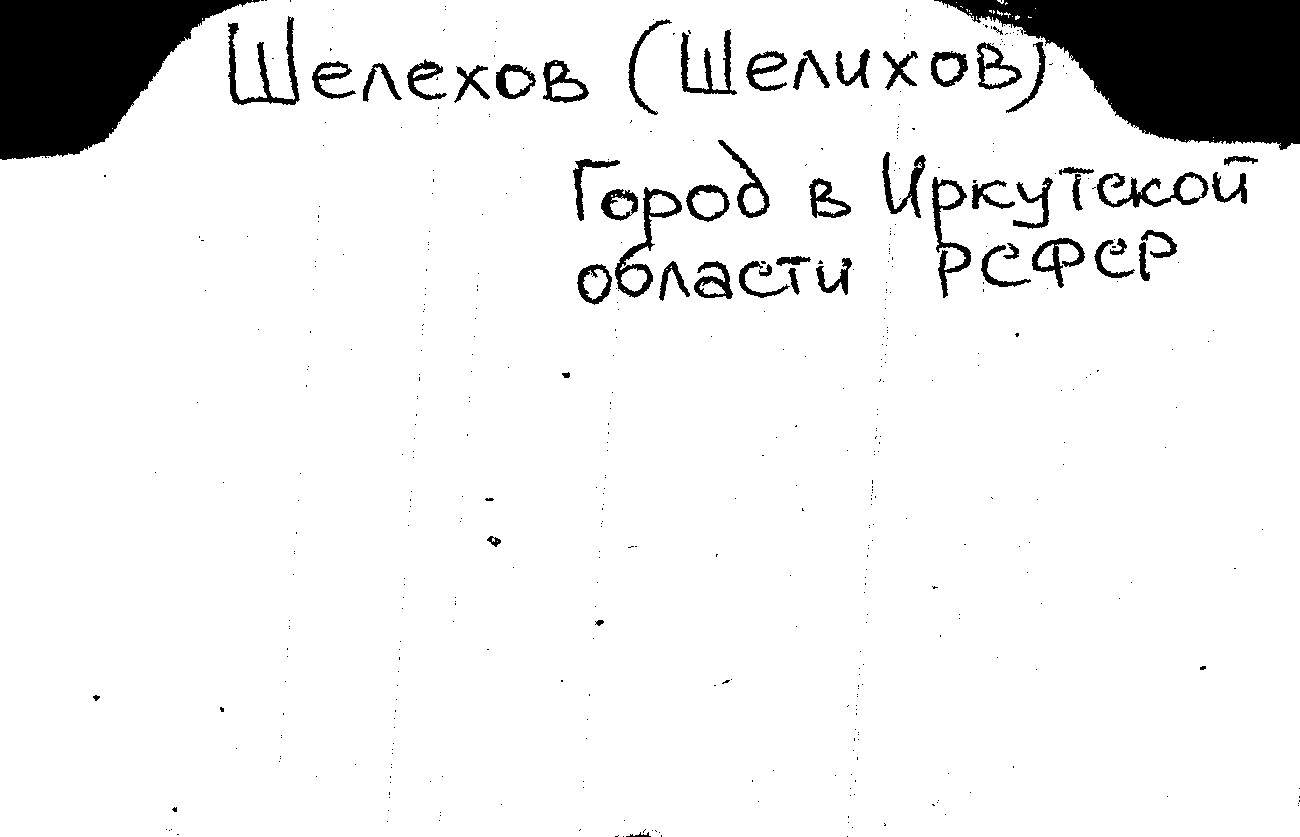 Шелехов (Шелихов)
Город в Иркутской
области РСФСР